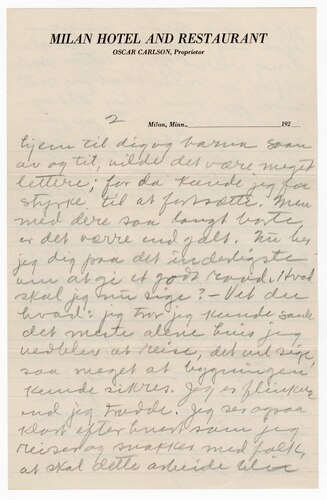 MILAN HOTEL AND RESTAURANT
OSCAR CARLSON, Proprietor
2
Milan, Minn., 192
hjem til dig og barna saan
av og til, vilde det være meget
lettere; for da kunde jeg faa
styrke til at fortsætte. Men
med dere saa langt borte
er det værre end galt. Nu ber
jeg dig paa det inderligste
om at gi et godt raad. Hvad
skal jeg nu sige? – Vet du
hvad: jeg tror jeg kunde samle
det meste alene hvis jeg
vedblev at reise, det vil sige,
saa meget at bygningen
kunde sikres. Jeg er flinkere
end jeg trodde. Jeg ser ogsaa
klart efterhvert som jeg
reiser og snakker med folk,
at skal dette arbeide